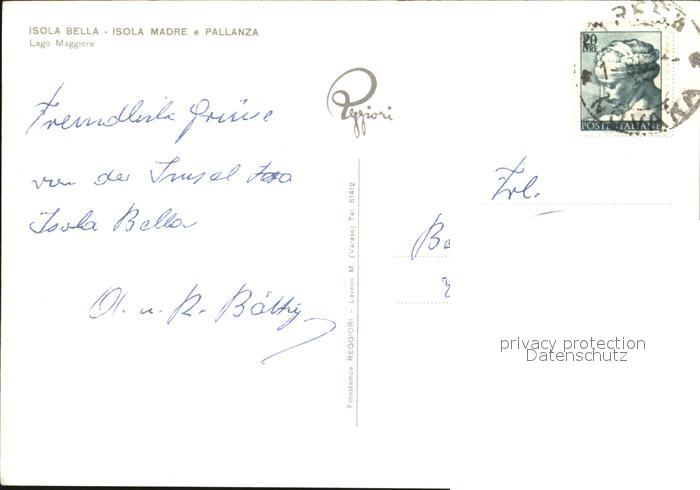 ISOLA BELLA - ISOLA MADRE e PALLANZA
Lago Maggiore
Freundliche Grüsse
von der Insel
Isola Bella
A. u. R. Bättig
Reggiori
Fotostampa REGGIORI - Laveno M. (Varese) Tel. 61412
20
LIRE
POSTE ITALIANE
Frl.
Ba
privacy protection
Datenschutz